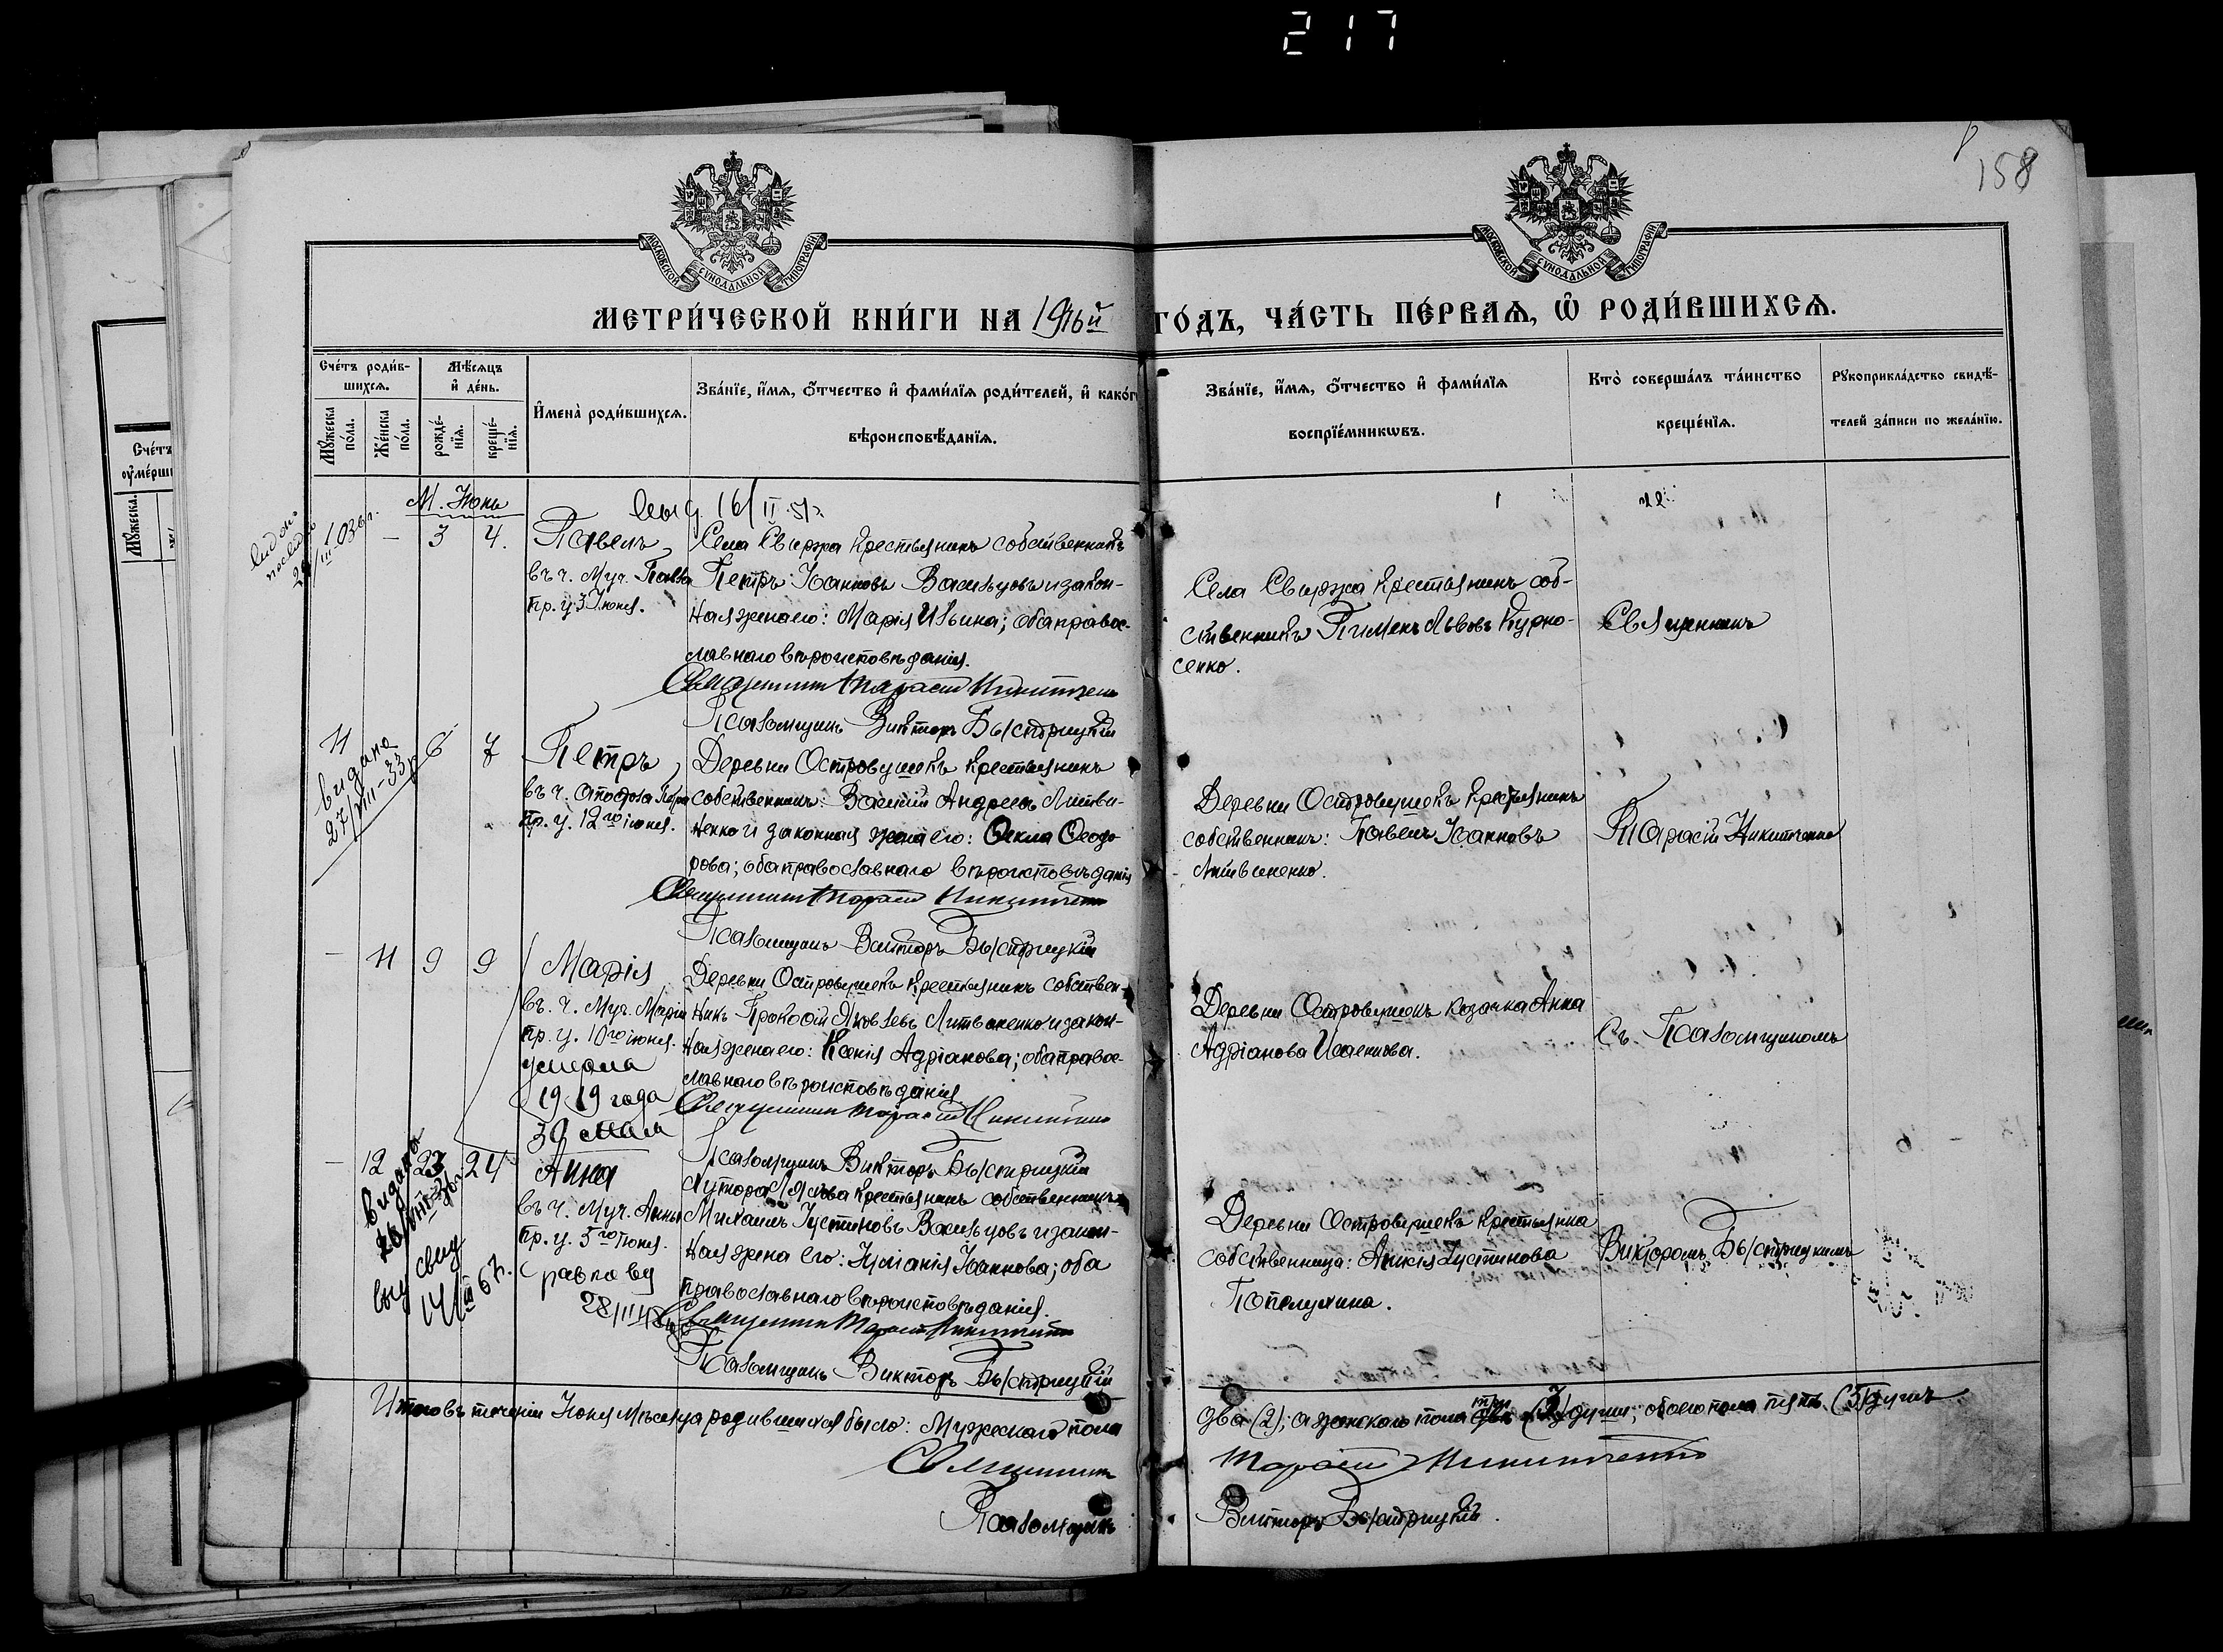 217
158
МОСКОВСКОЙ СѴНОДАЛЬНОЙ ТИПОГРАФІИ
МОСКОВСКОЙ СѴНОДАЛЬНОЙ ТИПОГРАФІИ
МЕТРИ́ЧЕСКОЙ КНИ́ГИ НА 1916й ГО́ДЪ, ЧА́СТЬ ПЕ́РВАѦ, Ѡ҆ РОДИ́ВШИХСѦ.
Сче́тъ роди́в-
шихсѧ.
Мꙋ́жеска по́ла.
Же́нска по́ла.
Мѣ́сѧцъ
и҆ де́нь.
рожде́-
нїѧ.
креще́-
нїѧ.
И҆мена̀ роди́вшихсѧ.
Зва́нїе, и҆́мѧ, ѻ҆́тчество и҆ фами́лїѧ роди́телей, и҆ како́гѡ
вѣроисповѣ́данїѧ.
Зва́нїе, и҆́мѧ, ѻ҆́тчество и҆ фами́лїѧ
воспрїе́мникѡвъ.
Кто̀ соверша́лъ та́инство
креще́нїѧ.
Рꙋкоприкла́дство свидѣ́-
телей за́писи по жела́нїю.
М. Іюнь
10 — 3 4.
Павелъ,
въ ч. Муч. Павла
пр. у. 3 Іюня.
Села Свиржа крестьянинъ собственникъ
Петръ Іоанновъ Васильцовъ и закон-
ная жена его: Марія Ильина; оба правос-
лавнаго вѣроисповѣданія.
Священникъ Тарасій Никитченко
Псаломщикъ Викторъ Быстрицкій
Села Свиржа крестьянинъ соб-
ственникъ Пименъ Львовъ Курно-
сенко.
Священникъ
11 6 7
видано
27/VIII-33 р
Петръ,
въ ч. Апостола Петра
пр. у. 12го іюня.
Деревни Островушекъ крестьянинъ
собственникъ: Василій Андреевъ Литви-
ненко и законная жена его: Ѳекла Ѳеодо-
рова; оба православнаго вѣроисповѣданія
Священникъ Тарасій Никитченко
Псаломщикъ Викторъ Быстрицкій
Деревни Островушекъ крестьянинъ
собственникъ: Павелъ Іоанновъ
Литвиненко.
Тарасій Никитченко
— 11 9 9
Марія
въ. ч. Муч. Маріи
пр. у. 10го іюня.
умерла
1919 года
30 мая
Деревни Островушекъ крестьянинъ собствен-
никъ Прокофій Яковлевъ Литвиненко и закон-
ная жена его: Ксенія Адріанова; оба правос-
лавнаго вѣроисповѣданія
Священникъ Тарасій Никитченко
Псаломщикъ Викторъ Быстрицкій
Деревни Островушекъ козачка Анна
Адріанова Исаенкова.
Съ Псаломщикомъ
— 12 23 24
видано
Анна
въ ч. Муч. Анны
пр. у. 5го Іюня.
Хутора крестьянинъ собственникъ
Михаилъ Іустиновъ Васильцовъ и закон-
ная жена его: Іуліанія Іоаннова; оба
православнаго вѣроисповѣданія.
Священникъ Тарасій Никитченко
Псаломщикъ Викторъ Быстрицкій
Деревни Островушекъ крестьянка
собственница: Анисія Іустинова
Викторомъ Быстрицкимъ
Итого въ теченіи Іюня мѣсяца родившихся было: Мужескаго пола
два (2); а женскаго пола три (3) души; обоего пола пять (5) душъ
Священникъ Тарасій Никитченко
Псаломщикъ Викторъ Быстрицкій.